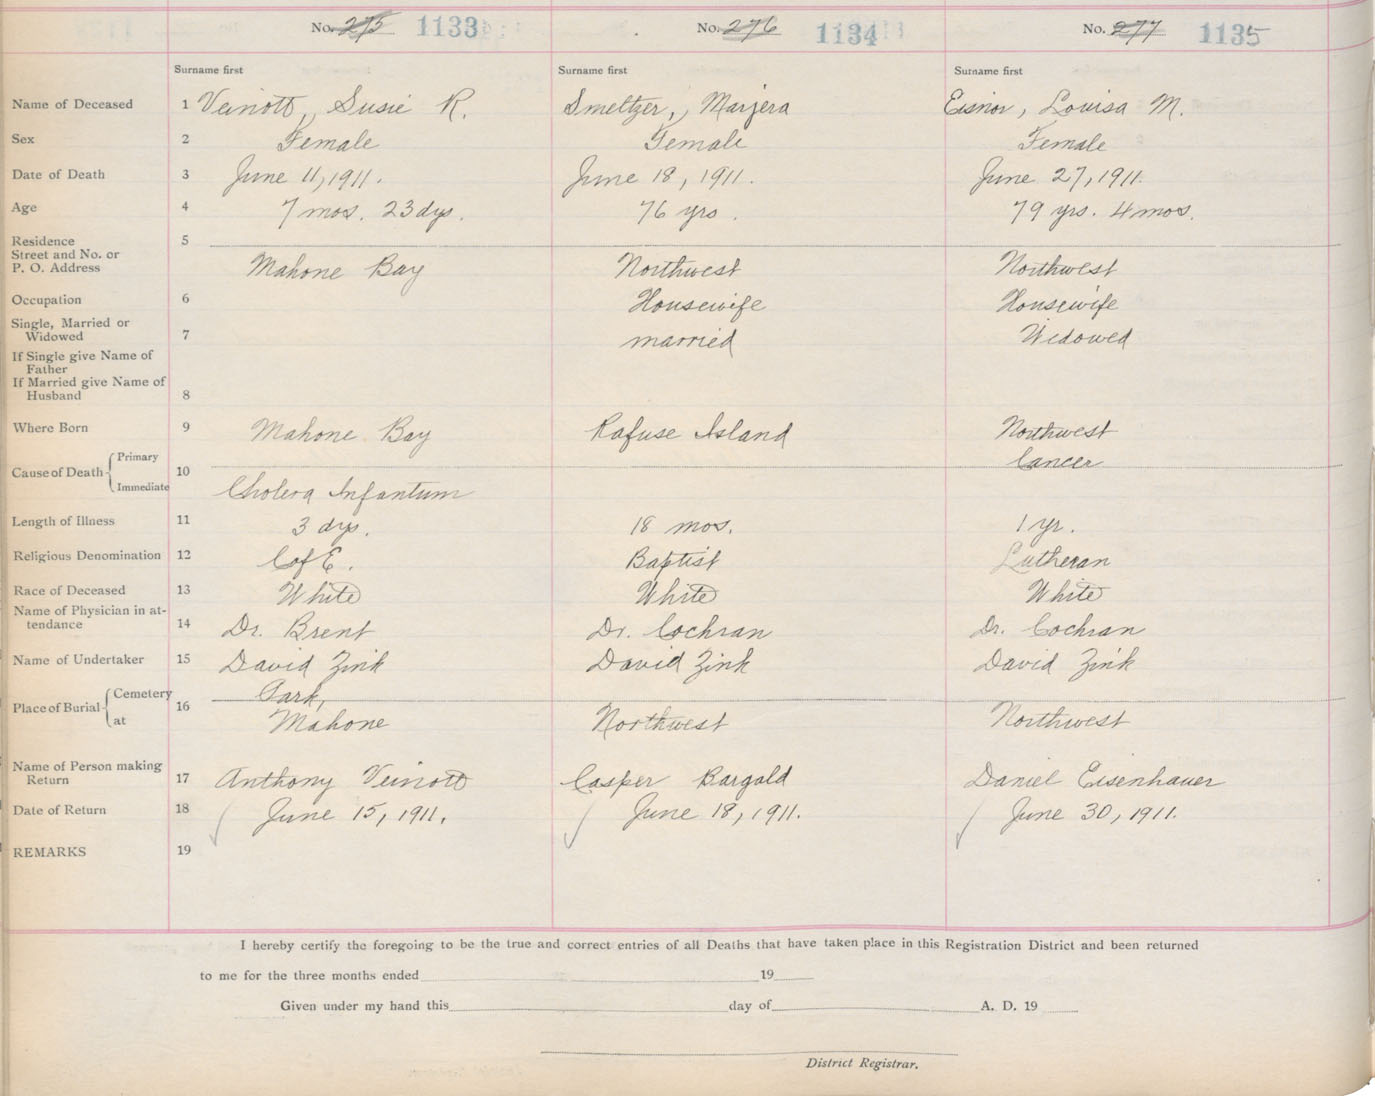 No. 275 1133 No. 276 1134 No. 277 1135
Surname first Surname first Surname first
Name of Deceased 1 Veinott, Susie R. Smeltzer, Marjera Eisnor, Louisa M.
Sex 2 Female Female Female
Date of Death 3 June 11, 1911. June 18, 1911. June 27, 1911.
Age 4 7 mos. 23 dys. 76 yrs. 79 yrs. 4 mos.
Residence 5
Street and No. or
P. O. Address Mahone Bay Northwest Northwest
Occupation 6 Housewife Housewife
Single, Married or
Widowed 7 married Widowed
If Single give Name of
Father
If Married give Name of
Husband 8
Where Born 9 Mahone Bay Rafuse Island Northwest
Cause of Death Primary 10 Cancer
Immediate Cholera Infantum
Length of Illness 11 3 dys. 18 mos. 1 yr.
Religious Denomination 12 C of E. Baptist Lutheran
Race of Deceased 13 White White White
Name of Physician in at-
tendance 14 Dr. Brent Dr. Cochran Dr. Cochran
Name of Undertaker 15 David Zink David Zink David Zink
Place of Burial Cemetery 16 Park,
at Mahone Northwest Northwest
Name of Person making
Return 17 Anthony Veinott Casper Bargold Daniel Eisenhauer
Date of Return 18 June 15, 1911. June 18, 1911. June 30, 1911.
REMARKS 19
I hereby certify the foregoing to be the true and correct entries of all Deaths that have taken place in this Registration District and been returned
to me for the three months ended 19
Given under my hand this day of A. D. 19
District Registrar.